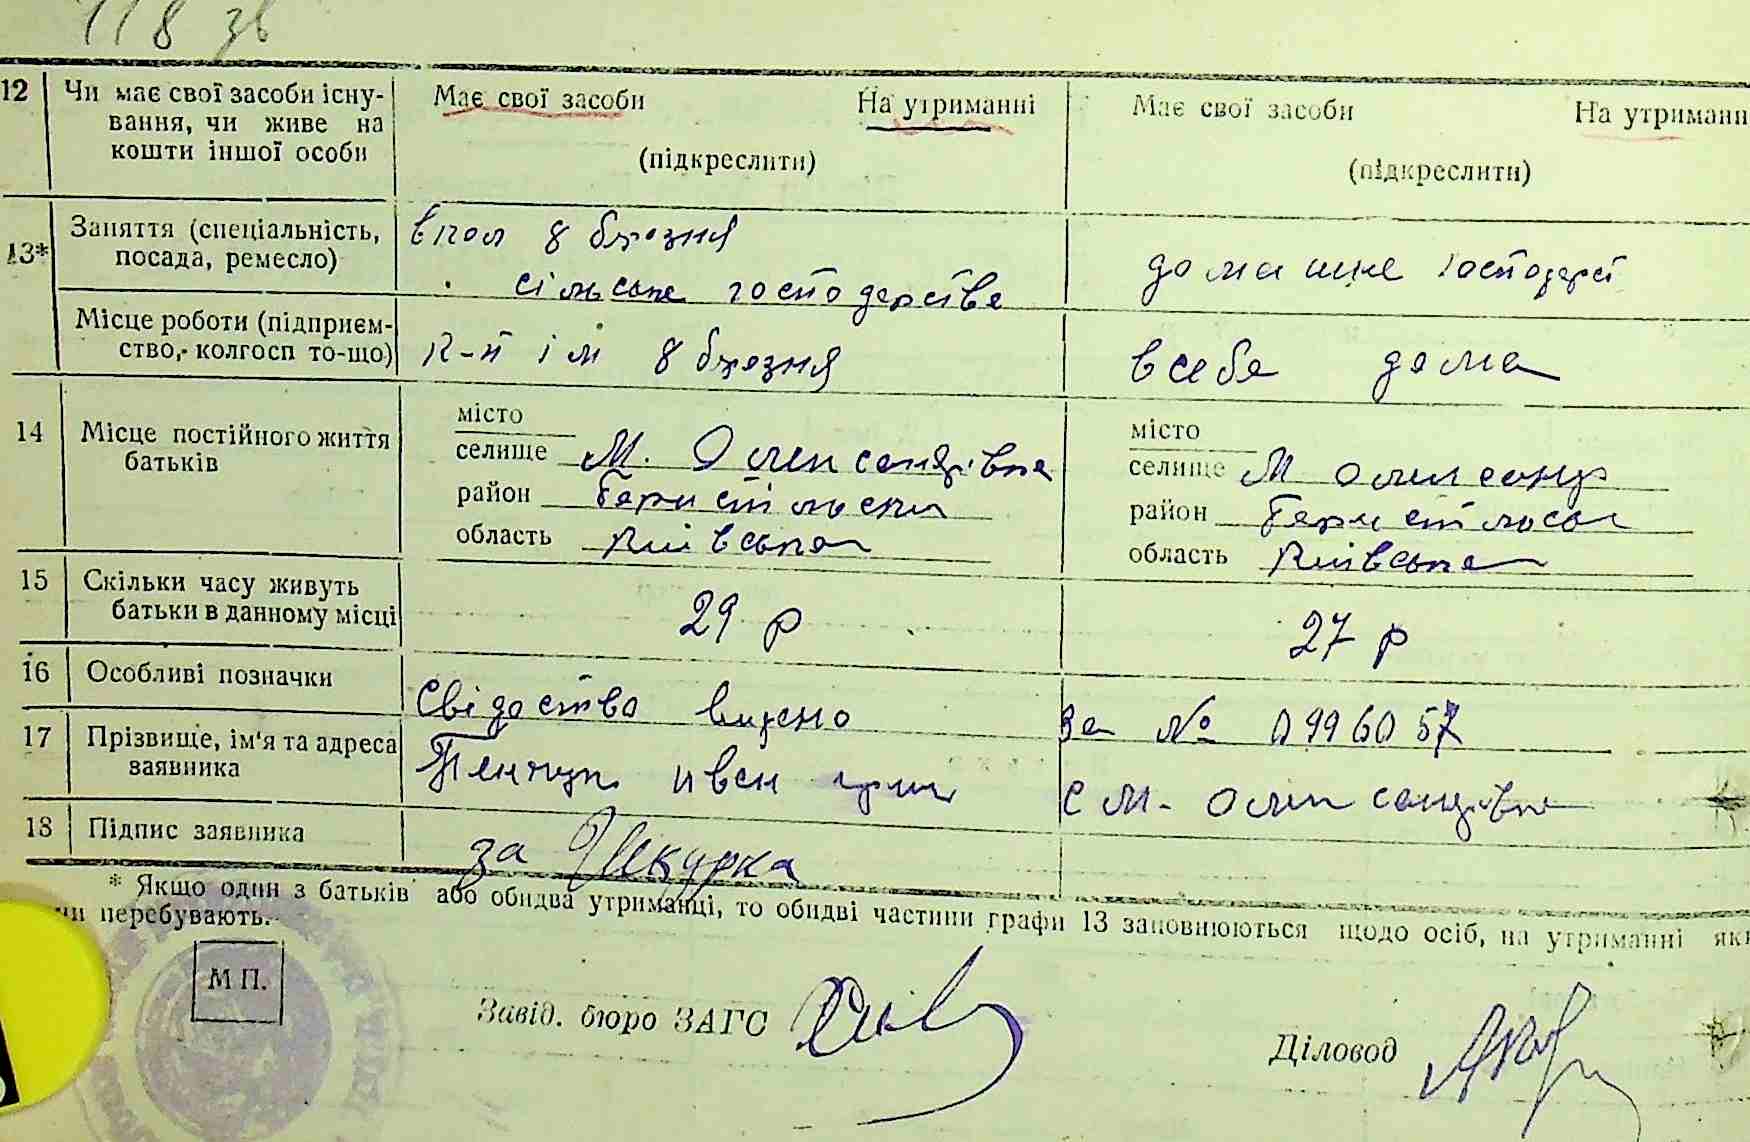 118 зв
12 Чи має свої засоби існу- Має свої засоби На утриманні Має свої засоби На утриманн
вання, чи живе на
кошти іншої особи (підкреслити) (підкреслити)
13* Заняття (спеціальність, 8 березня
посада, ремесло) сільське господарстве домашне господарст
Місце роботи (підприєм-
ство, колгосп то-що) к-п ім 8 березня в себе дома
14 Місце постійного життя
батьків
місто місто
селище М. Олександрівка селище М Олександр
район район
область Київська область Київська
15 Скільки часу живуть
батьки в данному місці 29 р 27 р
16 Особливі позначки Свідоство видено за № 0996057
17 Прізвище, ім'я та адреса
заявника с М. Олександрівка
18 Підпис заявника за Шкурка
* Якщо один з батьків або обидва утриманці, то обидві частини графи 13 заповнюються щодо осіб, на утриманні як
ни перебувають.
М П.
Завід. бюро ЗАГС
Діловод